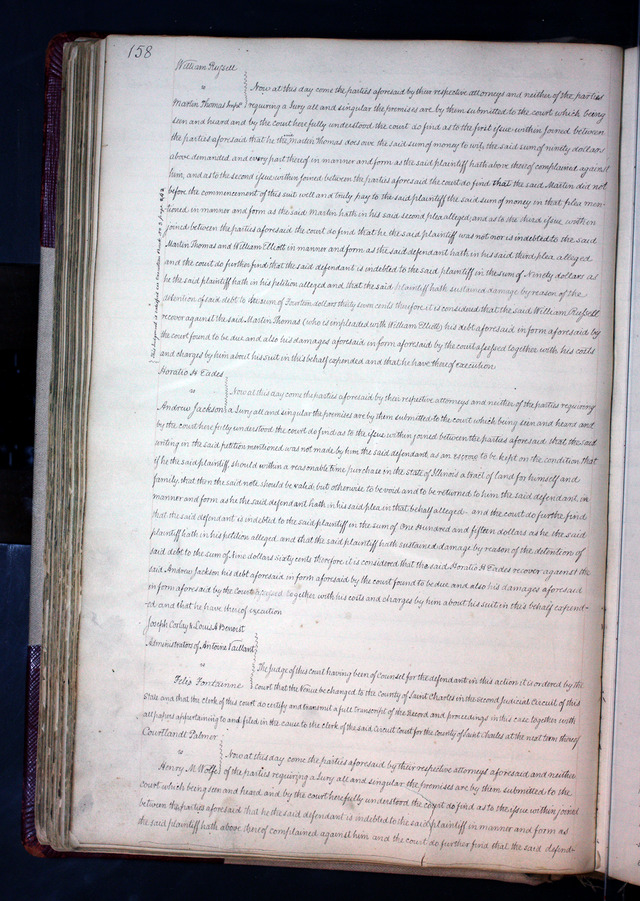 158
William Russell
vs
Now at this day come the parties aforesaid by their respective attorneys and neither of the parties
Martin Thomas Impl. requiring a Jury all and singular the premises are by them submitted to the court which being
seen and heard and by the court here fully understood the court do find as to the first issue within joined between
the parties aforesaid that he the Martin Thomas does owe the said sum of money to wit, the said sum of ninety dollars
above demanded and every part thereof in manner and form as the said plaintiff hath above thereof complained against
him, and as to the second issue within joined between the parties aforesaid the court do find that the said Martin did not
before the commencement of this suit well and truly pay to the said plaintiff the said sum of money in that plea men-
tioned in manner and form as the said Martin hath in his said second plea alleged; and as to the third issue within
joined between the parties aforesaid the court do find that he the said plaintiff was not nor is indebted to the said
Martin Thomas and William Elliott in manner and form as the said defendant hath in his said third plea alleged
and the court do further find that the said defendant is indebted to the said plaintiff in the sum of Ninety dollars as
he the said plaintiff hath in his petition alleged and that the said plaintiff hath sustained damage by reason of the
detention of said debt to the sum of Fourteen dollars thirty seven cents therefore it is considered that the said William Russell
recover against the said Martin Thomas (who is impleaded with William Elliott) his debt aforesaid in form aforesaid by
the court found to be due and also his damages aforesaid in form aforesaid by the court assessed together with his costs
and charges by him about his suit in this behalf expended and that he have thereof execution
Horatio H Eades
vs
Now at this day come the parties aforesaid by their respective attorneys and neither of the parties requiring
Andrew Jackson a Jury all and singular the premises are by them submitted to the court which being seen and heard and
by the court here fully understood the court do find as to the issue within joined between the parties aforesaid that the said
writing in the said petition mentioned was not made by him the said defendant as an escrow to be kept on the condition that
if he the said plaintiff should within a reasonable time purchase in the state of Illinois a tract of land for himself and
family, that then the said note should be valid; but otherwise to be void and to be returned to him the said defendant, in
manner and form as he the said defendant hath in his said plea in that behalf alleged and the court do further find
that the said defendant is indebted to the said plaintiff in the sum of One Hundred and fifteen dollars as he the said
plaintiff hath in his petition alleged and that the said plaintiff hath sustained damage by reason of the detention of
said debt to the sum of Nine dollars sixty cents therefore it is considered that the said Horatio H Eades recover against the
said Andrew Jackson his debt aforesaid in form aforesaid by the court found to be due and also his damages aforesaid
in form aforesaid by the Court assessed together with his costs and charges by him about his suit in this behalf expend-
ed and that he have thereof execution
Joseph Corlay & Louis A Benoist
Administrators of Antoine Vaillant
vs
The Judge of this court having been of Counsel for the defendant in this action it is ordered by the
Felix Fontainne court that the Venue be changed to the County of Saint Charles in the second Judicial Circuit of this
state and that the clerk of this court do certify and transmit a full transcript of the Record and proceedings in this case together with
all papers appertaining to and filed in the cause to the clerk of the said Circuit Court for the County of Saint Charles at the next term thereof
Courtlandt Palmer
vs
Now at this day come the parties aforesaid by their respective attorneys aforesaid and neither
Henry M Wolfe of the parties requiring a Jury all and singular the premises are by them submitted to the
court which being seen and heard and by the court here fully understood the court do find as to the issue within joined
between the parties aforesaid that he the said defendant is indebted to the said plaintiff in manner and form as
the said plaintiff hath above thereof complained against him and the court do further find that the said defend-